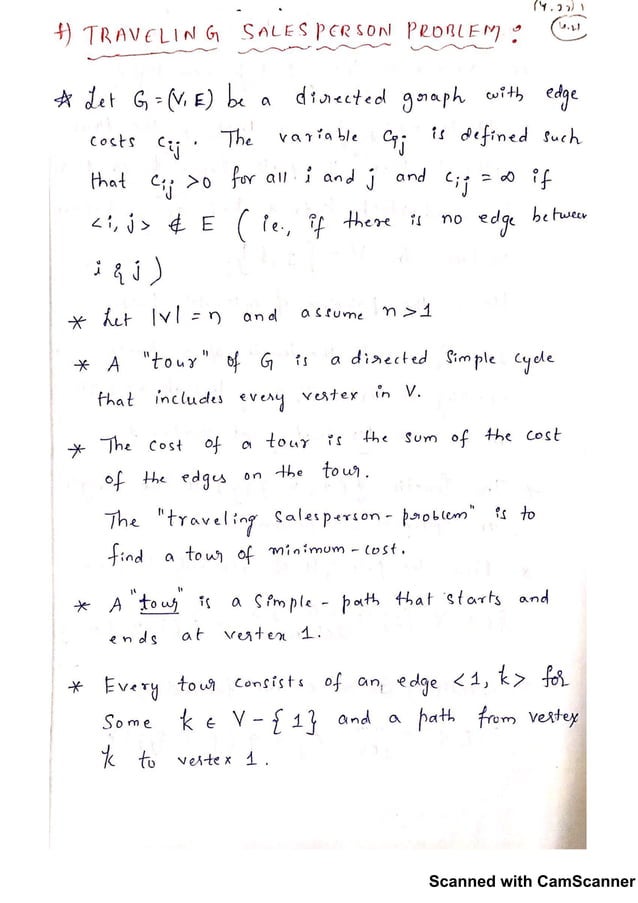 f) TRAVELING SALESPERSON PROBLEM :
* Let G = (V, E) be a directed graph with edge
costs cij . The variable cij is defined such
that cij >0 for all i and j and cij = ∞ if
<i, j> ∉ E ( ie., if there is no edge between
i & j )
* Let |V| = n and assume n >1
* A "tour" of G is a directed Simple cycle
that includes every vertex in V.
* The cost of a tour is the sum of the cost
of the edges on the tour.
The "traveling salesperson - problem" is to
find a tour of minimum - cost .
* A "tour" is a Simple - path that starts and
ends at vertex 1.
* Every tour consists of an edge <1, k> for
Some k ∈ V - { 1 } and a path from vertex
k to vertex 1 .
Scanned with CamScanner